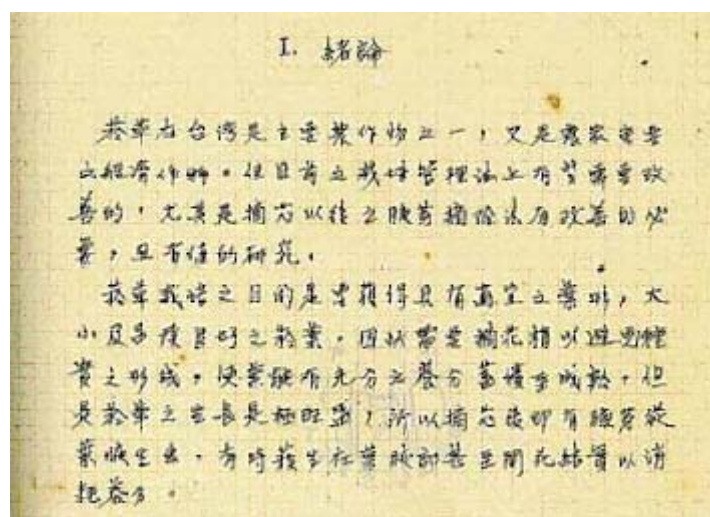 I. 緒論
菸草在台湾是主要農作物之一,又是農家重要
之經濟作物。但目前之栽培管理法上有需要改
善的,尤其是摘芯以後之腋芽摘除法有改善的必
要,且有值的研究。
菸草栽培之目的是要獲得具有適宜之葉形,大
小及多獲良好之菸葉,因此需要摘花梢以避免種
實之形成,使葉能有充分之養分蓄積與成熟,但
是菸草之生長是極旺盛,所以摘芯後即有腋芽從
葉腋生出,有時發生在葉腋部甚至開花結實以消
耗養分。